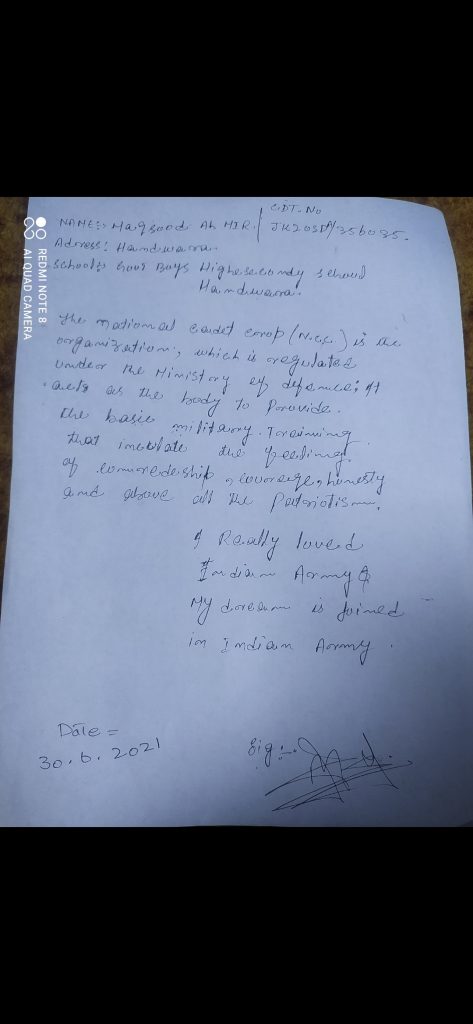 CDT. No
NAME:- Maqsood Ah MIR. JK20SDA/356035.
Adress: Handwara.
School:- Govt Boys Highesecondy school
Handwara.
The national cadet corop (N.c.c.) is the
organization, which is regulated
under the Ministory of defence; It
acts as the body to Porovide.
the basic military. Toraining
that inculate the feeling
of comoredeship, couorage, honesty
and above all the Patoriotism.
I Really loved
Indian Aromy &
My doream is joined
in Indian Aromy.
Date =
30.6.2021
Sig:-
REDMI NOTE 8
AI QUAD CAMERA